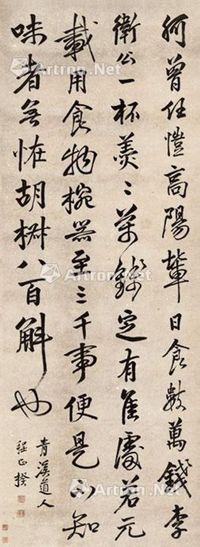 何曾任愷高陽輩日食數萬錢李
衛公一杯羹二萬錢定有佳處若元
載用食物椀器至三千事便是不知
味者無怪胡椒八百斛也
青溪道人
程正揆
Artron.Net
Artron.Net